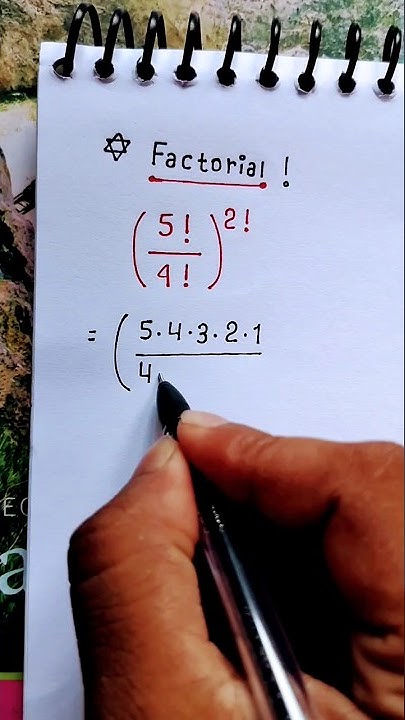 ✡ Factorial !
(5!/4!)^2!
= (5·4·3·2·1/4·